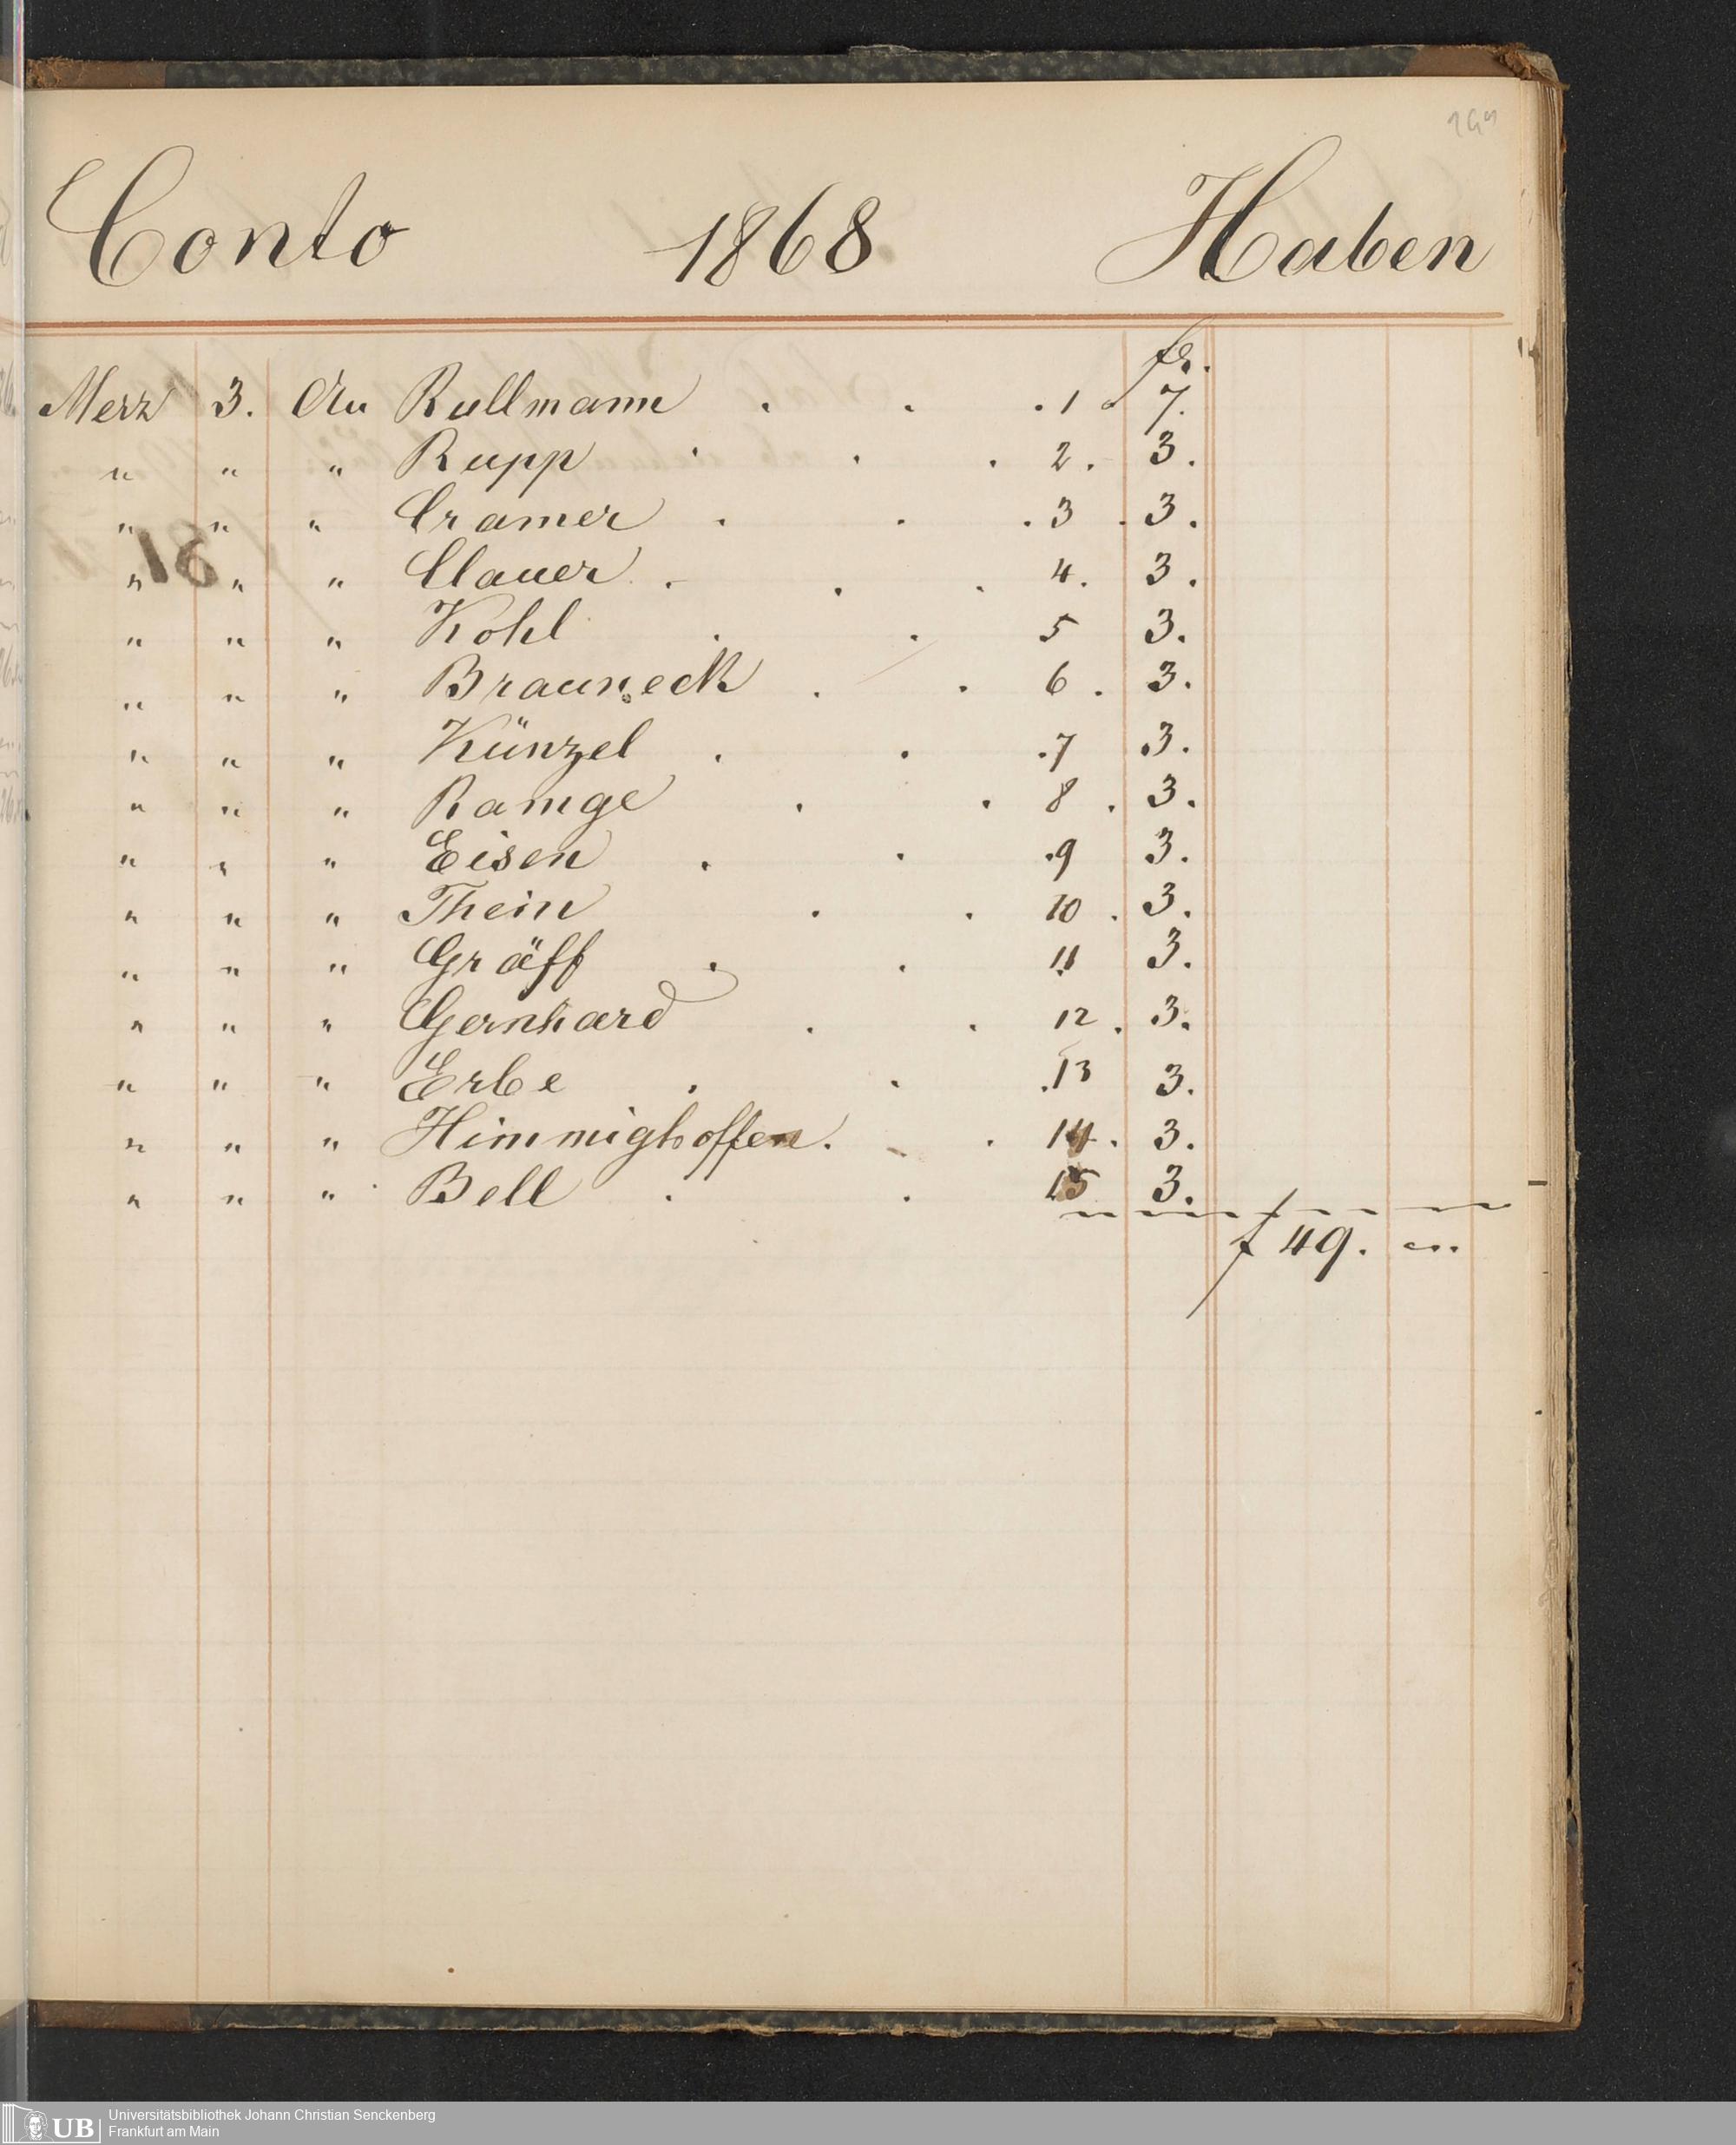 Conto 1868 Haben
fr.
Merz 3. An Rullmann . . . 1 7.
" " " Rupp . . . 2. 3.
" " " Cramer . . . 3 . 3.
" " " Clauer . . . 4. 3.
" " " Kohl . . 5 3.
" " " Brauneck . . 6 . 3.
" " " Künzel . . .7 .3.
" " " Ramge . . 8 . 3.
" " " Eisen . . .9 3.
" " " Thein . . 10 . 3.
" " " Gräff . . 11 3.
" " " Gernhard . . 12 . 3.
" " " Erbe . . .13 3.
" " " Himmighoffen . . 14. 3.
" " " Bell . . 15 3.
f 49.
UB Universitätsbibliothek Johann Christian Senckenberg
Frankfurt am Main